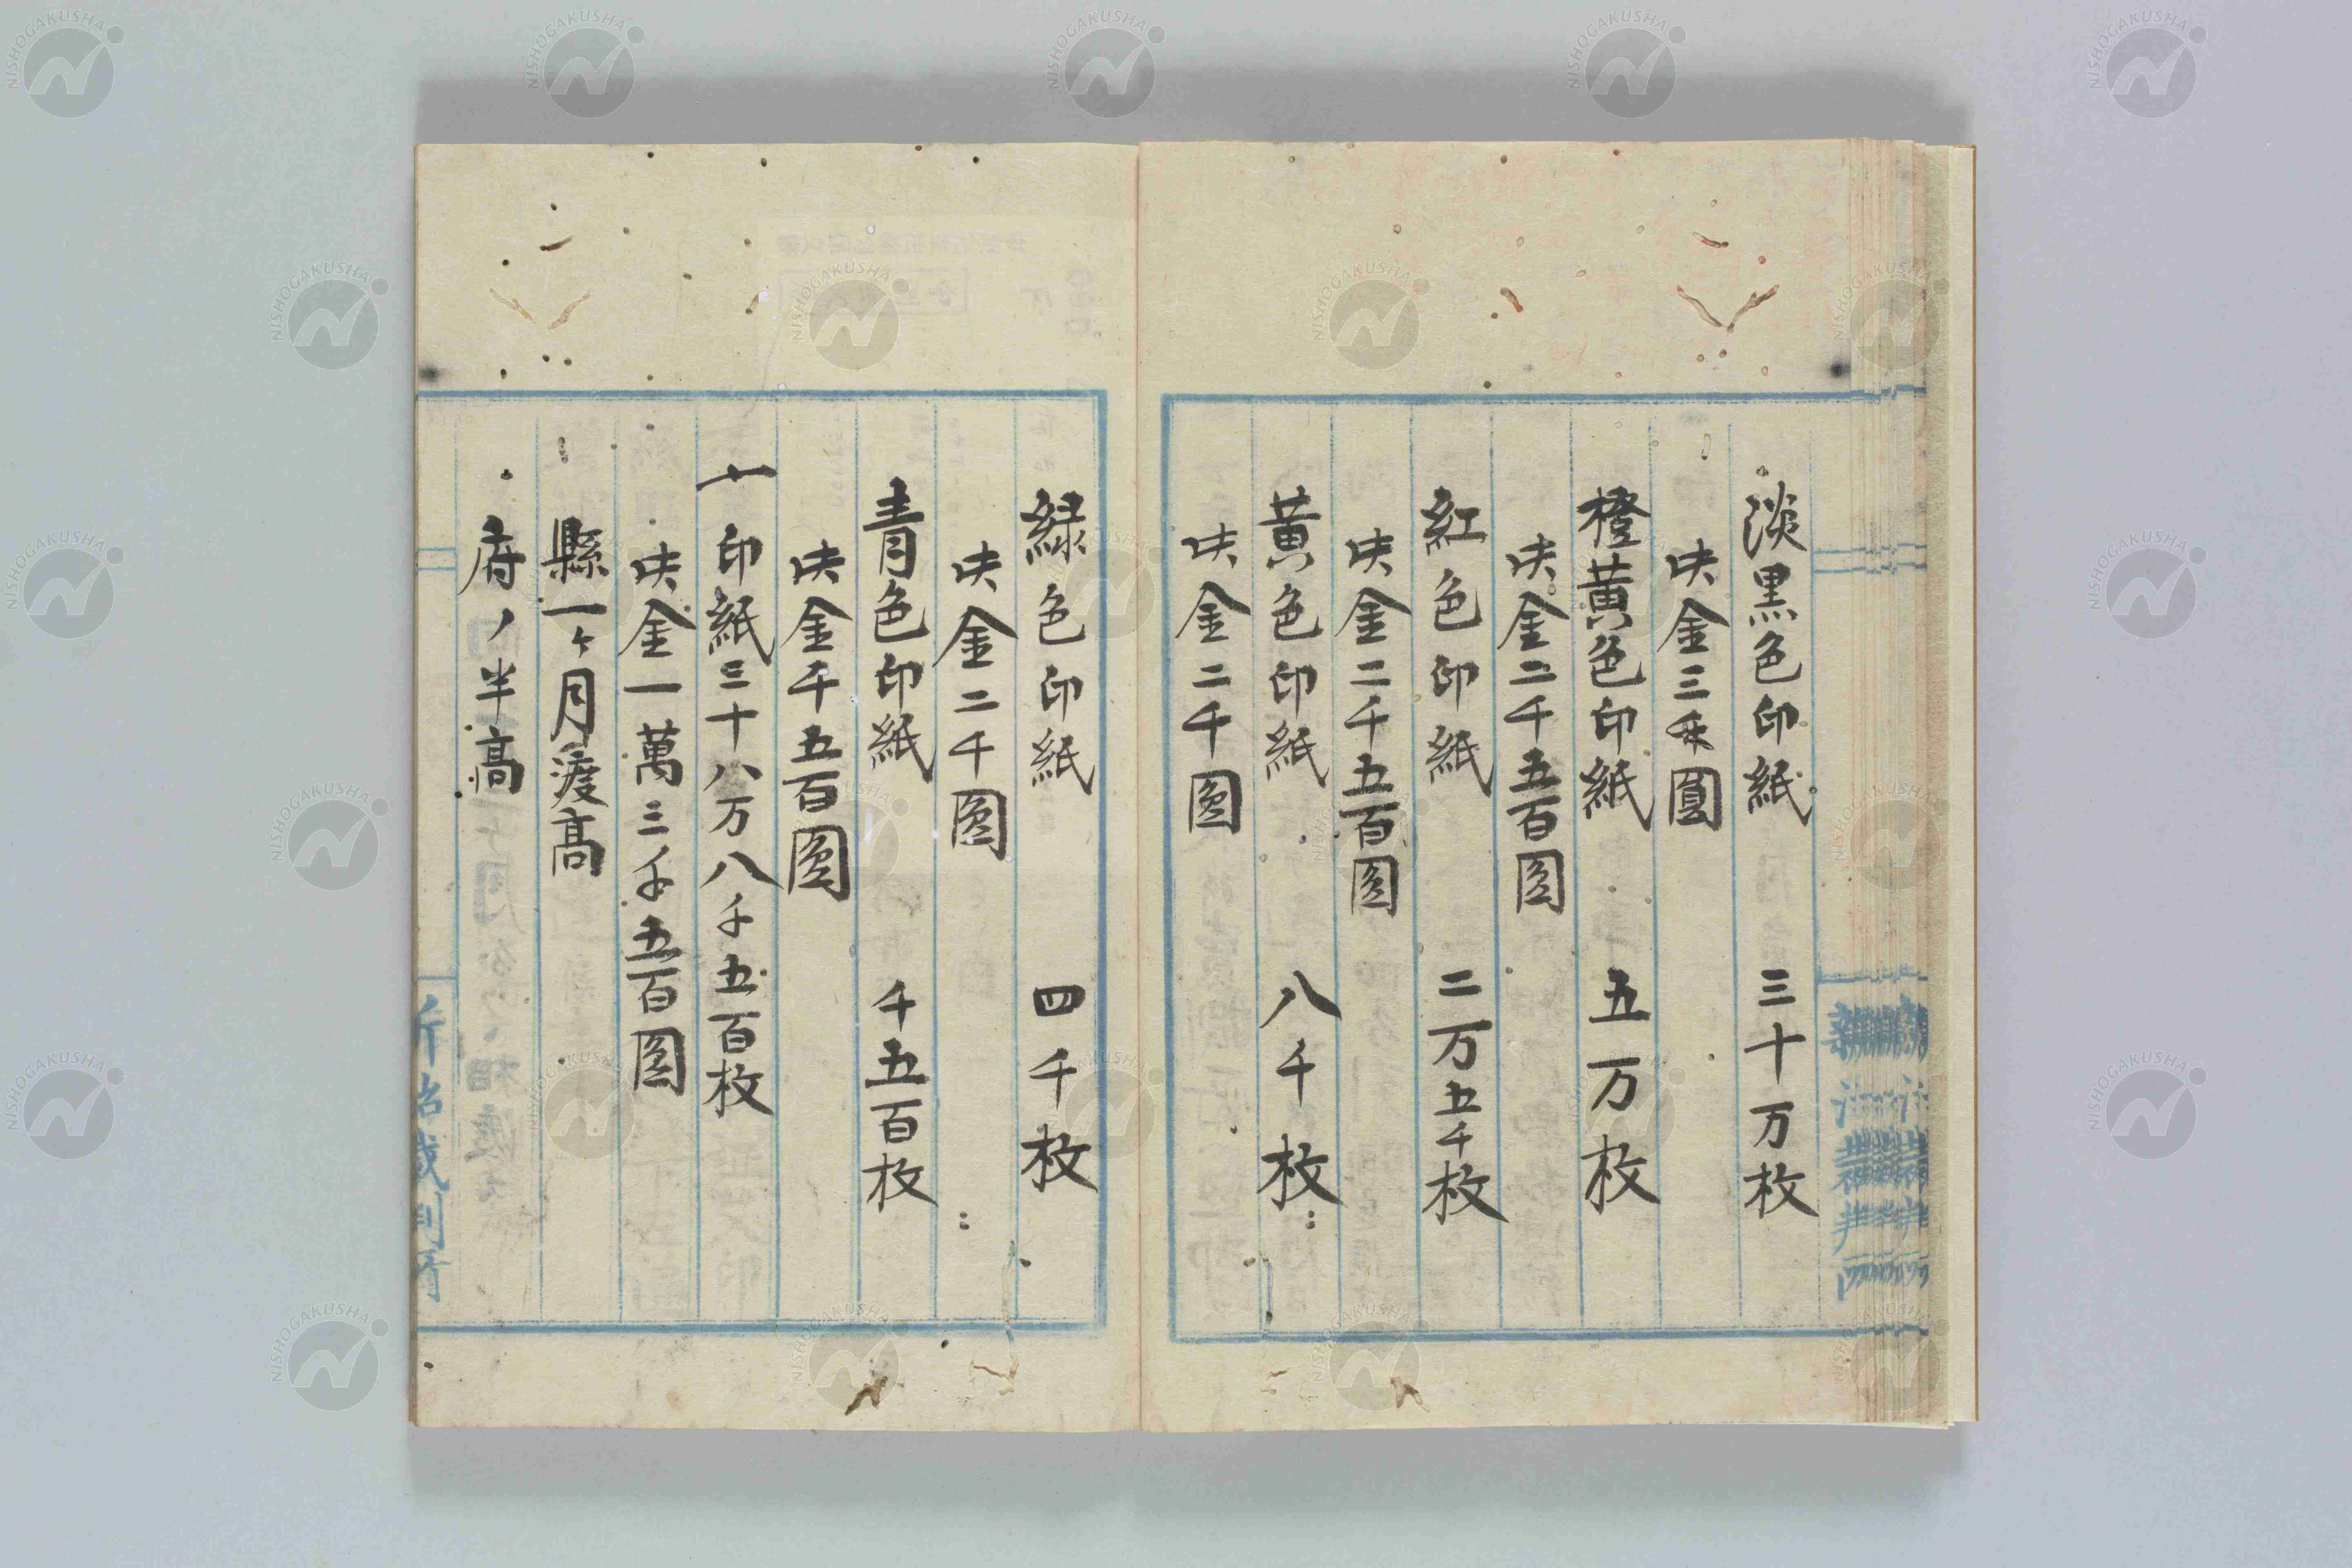 淡黒色印紙　三十万枚
此金三千圓
橙黄色印紙　五万枚
此金二千五百圓
紅色印紙　二万五千枚
此金二千五百圓
黄色印紙　八千枚
此金二千圓
緑色印紙　四千枚
此金二千圓
青色印紙　千五百枚
此金千五百圓
一印紙三十八万八千五百枚
此金一萬三千五百圓
縣一ヶ月渡高
府ノ半高
新治裁判所